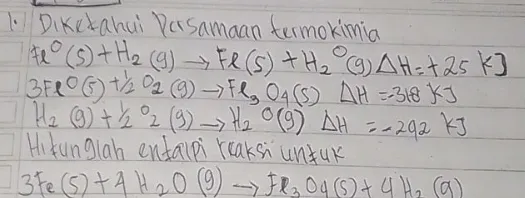 1. Diketahui Persamaan termokimia
FeO(s) + H₂(g) → Fe(s) + H₂O(g) ΔH = +25 KJ
3FeO(s) + ½ O₂(g) → Fe₃O₄(s) ΔH = -318 KJ
H₂(g) + ½ O₂(g) → H₂O(g) ΔH = -292 KJ
Hitunglah entalpi reaksi untuk
3Fe(s) + 4H₂O(g) → Fe₃O₄(s) + 4H₂(g)